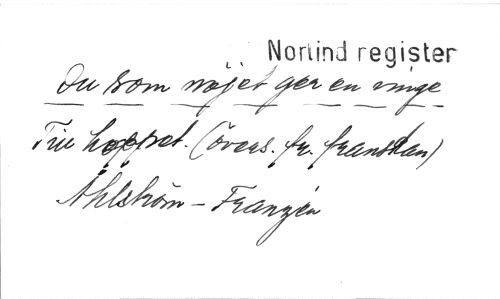 Norlind register
Du som nöjet ger en vinge
Till hoppet. (övers. fr. franskan)
Åhlström - Franzén